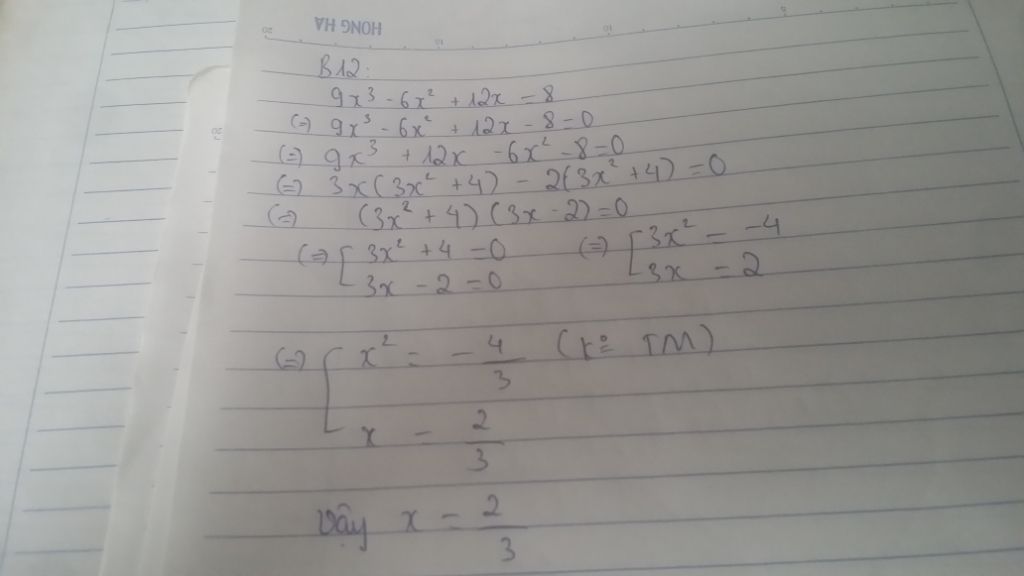 HONG HA
B12:
9x³ - 6x² + 12x = 8
(=) 9x³ - 6x² + 12x - 8 = 0
(=) 9x³ + 12x - 6x² - 8 = 0
(=) 3x(3x² + 4) - 2(3x² + 4) = 0
(=) (3x² + 4) (3x - 2) = 0
(=) [ 3x² + 4 = 0 (=) [ 3x² = -4
3x - 2 = 0 3x = 2
(=) [ x² = - 4/3 (K° TM)
x = 2/3
Vậy x = 2/3